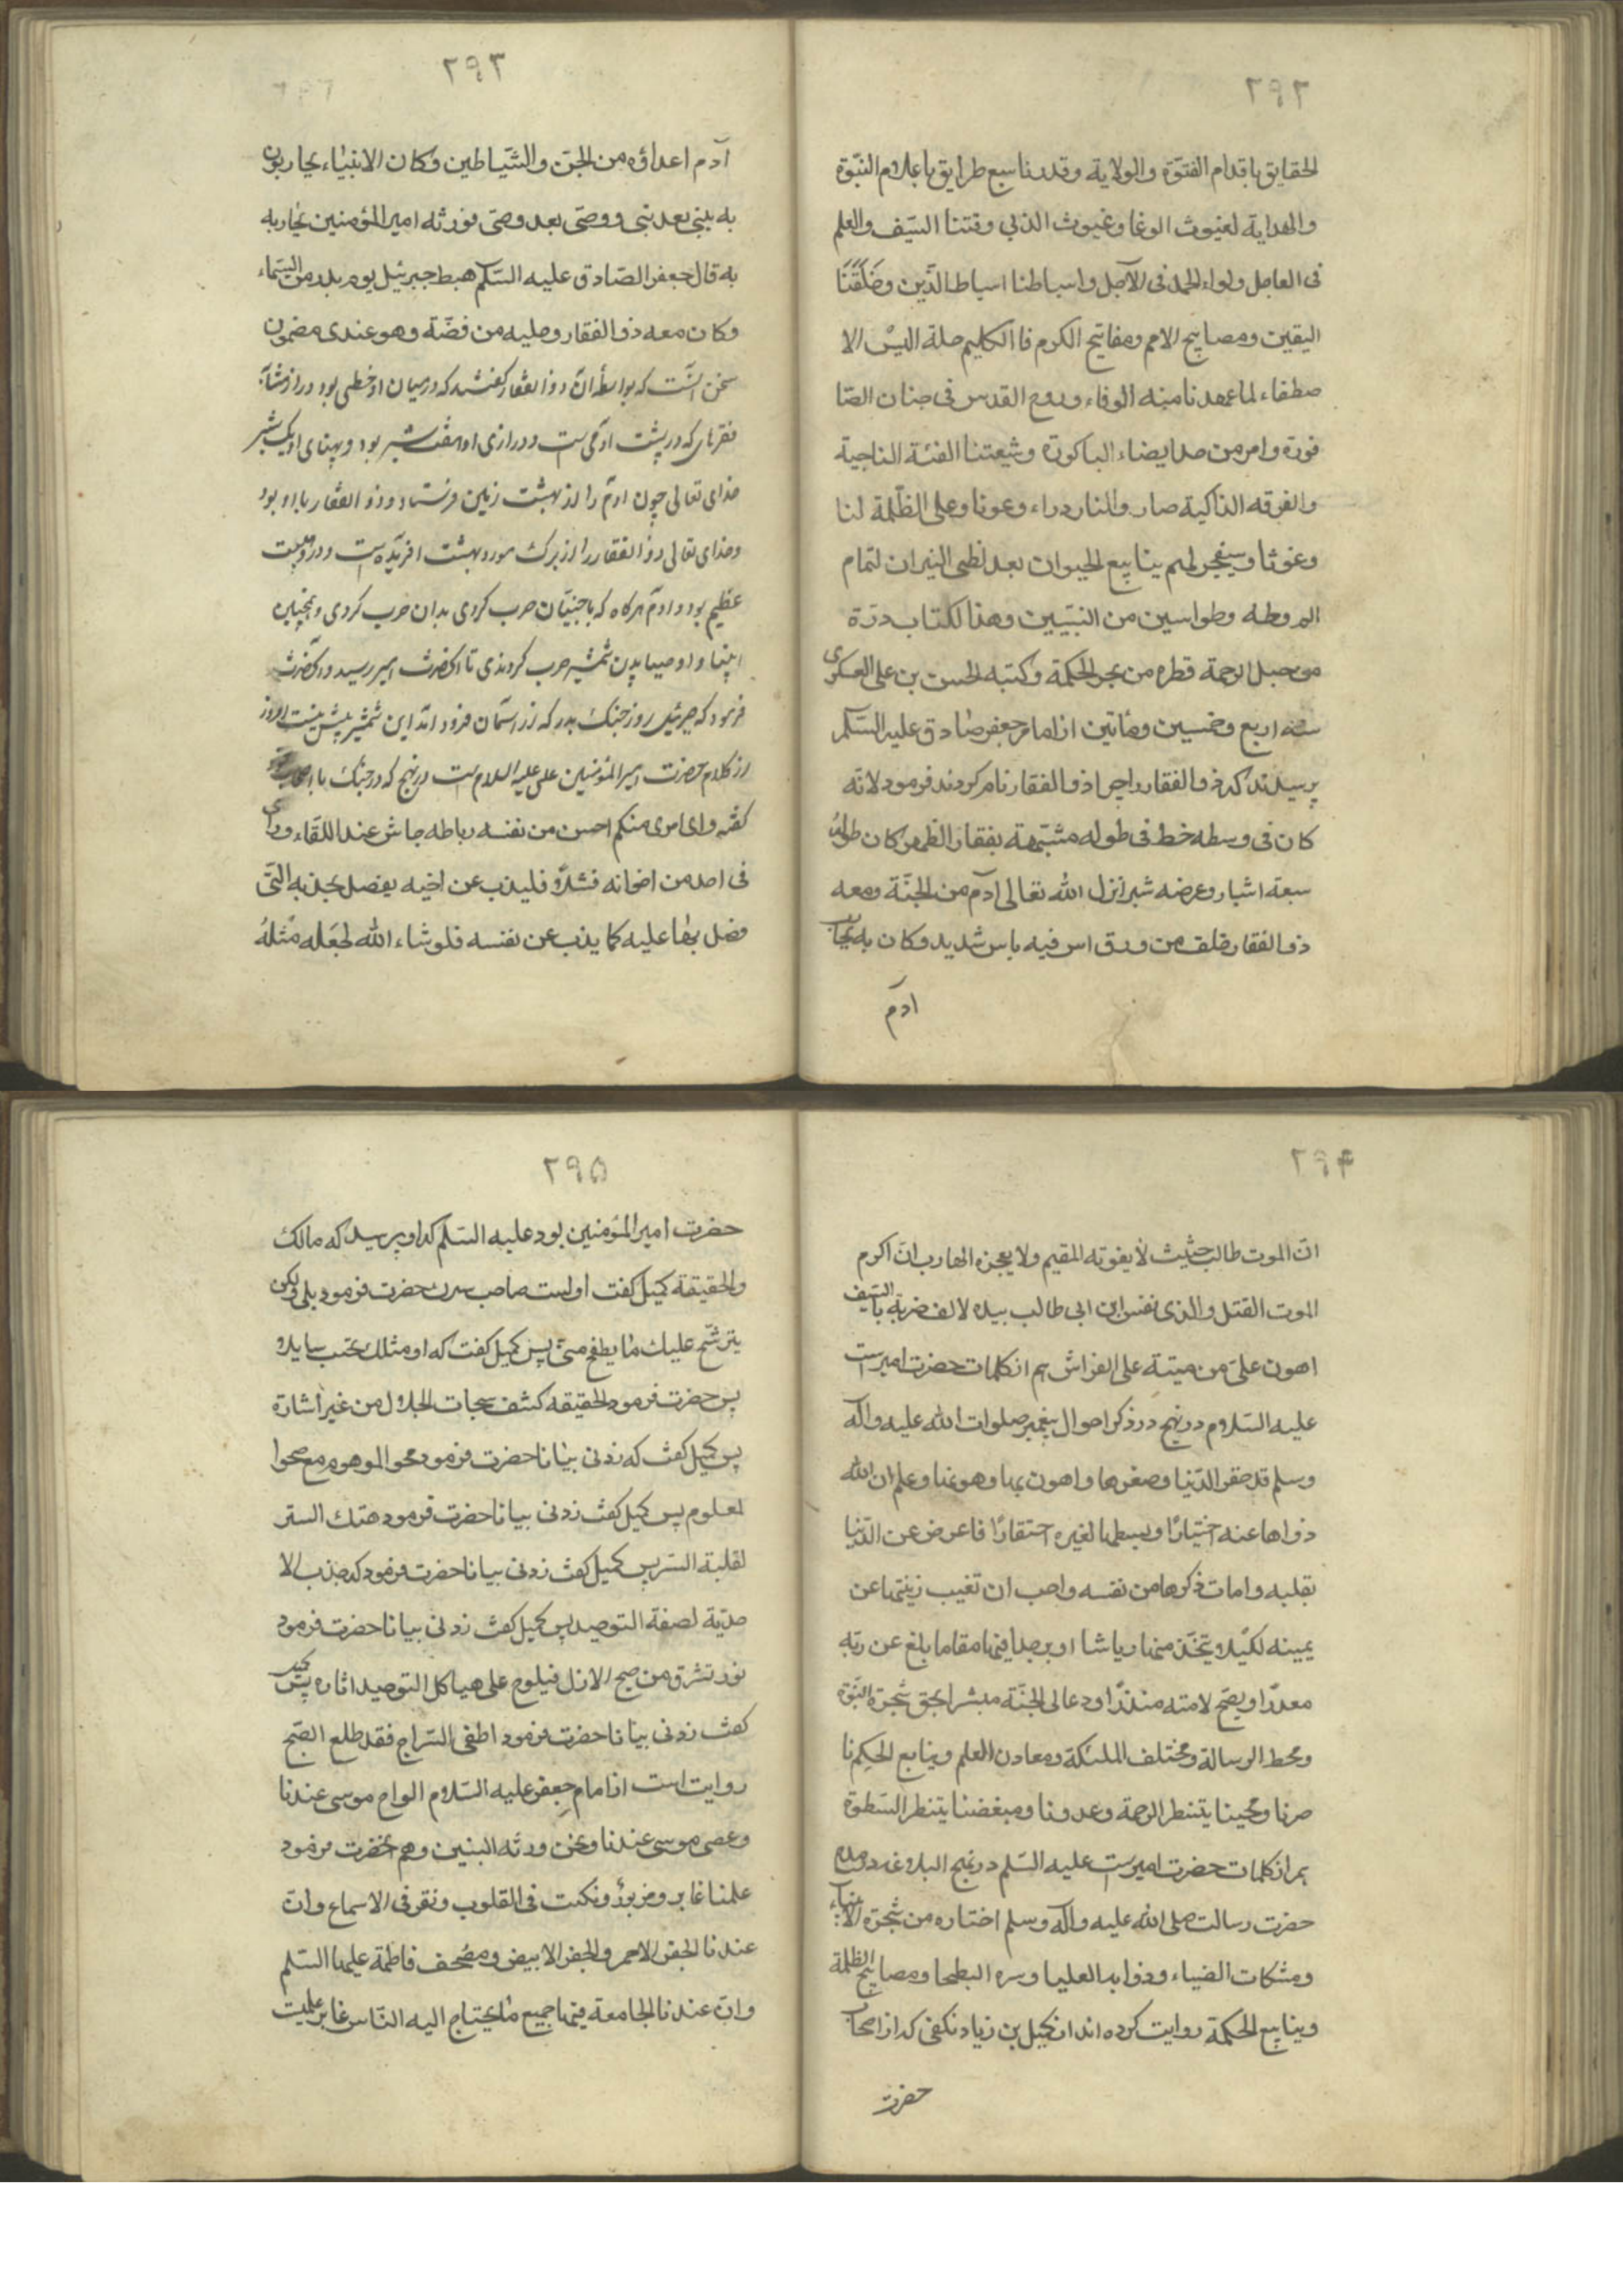 ٢٩٢
الحقایق باقدام الفتوّة والولایة وقدرنا سبع طرایق باعلام النبّوة
والهدایة لغیوث الوغا وغیوث الندی وفتنا السّیف والعلم
فی العاجل ولواء الحمد فی الآجل واسباطنا اسباط الدّین وخلفنا
الیقین ومصابیح الامم ومفاتیح الکرم فا الکلیم حلة البس الا
صطفاء لما عهدنا منه الوفاء وروح القدس فی جنان الصا
قورة وامر من حدایضاء الباکورة وشیعتنا الفئة الناجیة
والفرقه الذاکیة صار والنار دراء وعونا وعلی الظّلمة لنا
وعوثا وسیفجر لهم ینابیع الحیوان بعد لظی النیران لتمام
الم وطه وطواسین من النبیّین وهذا لکتاب درّة
من جبل الرحمة قطره من بحر الحکمة وکتبه الحسن بن علی العسکری
سنه اربع وخمسین ومأتین از امام جعفر صادق علیه السّلام
پرسیدند که ذوالفقار را چرا ذوالفقار نام کردند فرمود لانّه
کان فی وسطه خط فی طوله مشبّهة بفقار الظهر کان طوله
سبعة اشبار وعرضه شبر انزل الله تعالی آدم من الجنّة ومعه
ذوالفقار خلف من ورق اس فیه باس شدید وکان به یحارب
ادم
٢٩٣
آدم اعداؤه من الجنّ والشّیاطین وکان الانبیاء یحاربون
به نبی بعد نبی ووصّی بعد وصّی فورثه امیر المؤمنین یحاربه
به قال جعفر الصّادق علیه السّلام هبط جبرئیل یوم بدر من السّماء
وکان معه ذوالفقار وحلیه من فضّة وهو عندی مضمون
سخن آنست که بواسطه آن ذوالفقار گفتند که در میان او خطی بود دراز مشابه
فقرهای که در پشت آدمی است ودرازی او هفت شبر بود وپهنای او یک شبر
خدای تعالی چون آدم را از بهشت زمین فرستاد وذوالفقار با او بود
وخدای تعالی ذوالفقار را از برک مورد بهشت آفریده است ودرو هیبت
عظیم بود وآدم هرگاه که با جنیّان حرب کردی بدان حرب کردی وهمچنین
انبیا واوصیا بدین شمشیر حرب کردندی تا آنحضرت امیر رسید وآنحضرت
فرمود که جبرئیل روز جنک بدر که از آسمان فرود آمد این شمشیر پیش منست امروز
از کلام حضرت امیر المؤمنین علی علیه السلام است در نهج که در جنک با اصحاب خود
گفته وای امری منکم احسن من نفسه رباطه جاش عند اللقاء ورأی
فی احد من اخوانه فشلاً فلیذب عن اخیه بفضل نجدته التّی
فضل بها علیه کما یذب عن نفسه فلو شاء الله لجعله مثله
٢٩۴
انّ الموت طالب حثیث لا یفوته المقیم ولا یعجزه الهارب انّ اکرم
الموت القتل والذی نفس ابن ابی طالب بیده لالف ضربة بالسّیف
اهون علّی من میتة علی الفراش هم از کلمات حضرت امیر است
علیه السّلام در نهج در ذکر احوال پیغمبر صلوات الله علیه وآله
وسلم قد حقر الدّنیا وصغرها واهون بها وهونها وعلم ان الله
ذواها عنه اختیارًا وبسطها لغیره احتقارًا فاعرض عن الدّنیا
بقلبه وامات ذکرها من نفسه واحب ان تغیب زینتها عن
یمینه لکیلا یتخذ منها ریاشا او یرجا فیها مقاما بلغ عن ربّه
معذرًا وینصح لامته منذرًا ودعا الی الجنّة مبشرا نحن شجرة النبّوة
ومحط الرسالة ومختلف الملئکة ومعادن العلم وینابع الحکم نا
صرنا ومحبنا ینتظر الرحمة وعدونا ومبغضنا ینتظر السّطوة
هم از کلمات حضرت امیر است علیه السّلم در نهج البلاغه در مدح
حضرت رسالت صلی الله علیه وآله وسلم اختاره من شجرة الانبیاء
ومشکات الضیاء وذوابه العلیا وسره البطحا ومصابیح الظلمة
وینابیع الحکمة روایت کرده اند از کمیل بن زیاد نکفی که از اصحاب
حضرت
٢٩۵
حضرت امیر المؤمنین بود علیه السّلم که او پرسید که مالک
والحقیقة کمیل گفت اولست صاحب سرک حضرت فرمود بلی ولکن
یترشّح علیک ما یطفح منّی پس کمیل گفت که او مثلک یخیب سایلا
پس حضرت فرمود الحقیقه کشف سبحات الجلال من غیر اشارة
پس کمیل گفت که زدنی بیانا حضرت فرمود محو الموهوم مع صحوا
لمعلوم پس کمیل گفت زدنی بیانا حضرت فرمود هتک الستر
لغلبة السّر پس کمیل گفت زدنی بیانا حضرت فرمود که جذب الا
حدیّة لصفة التوحید پس کمیل گفت زدنی بیانا حضرت فرمود
نور تشرق من صبح الازل فیلوح علی هیاکل التوحید اثاره پس کمیل
گفت زدنی بیانا حضرت فرمود اطفی السّراج فقد طلع الصّبح
روایت است از امام جعفر علیه السّلام الواح موسی عندنا
وعصی موسی عندنا ونحن ورثه النبیین وهم آنحضرت فرمود
علمنا غابر ومزبور ونکت فی القلوب ونقر فی الاسماع وانّ
عندنا الجفر الاحمر والجفر الابیض ومصحف فاطمة علیها السّلم
وانّ عندنا الجامعة فیها جمیع ما یحتاج الیه النّاس غابر علمیت